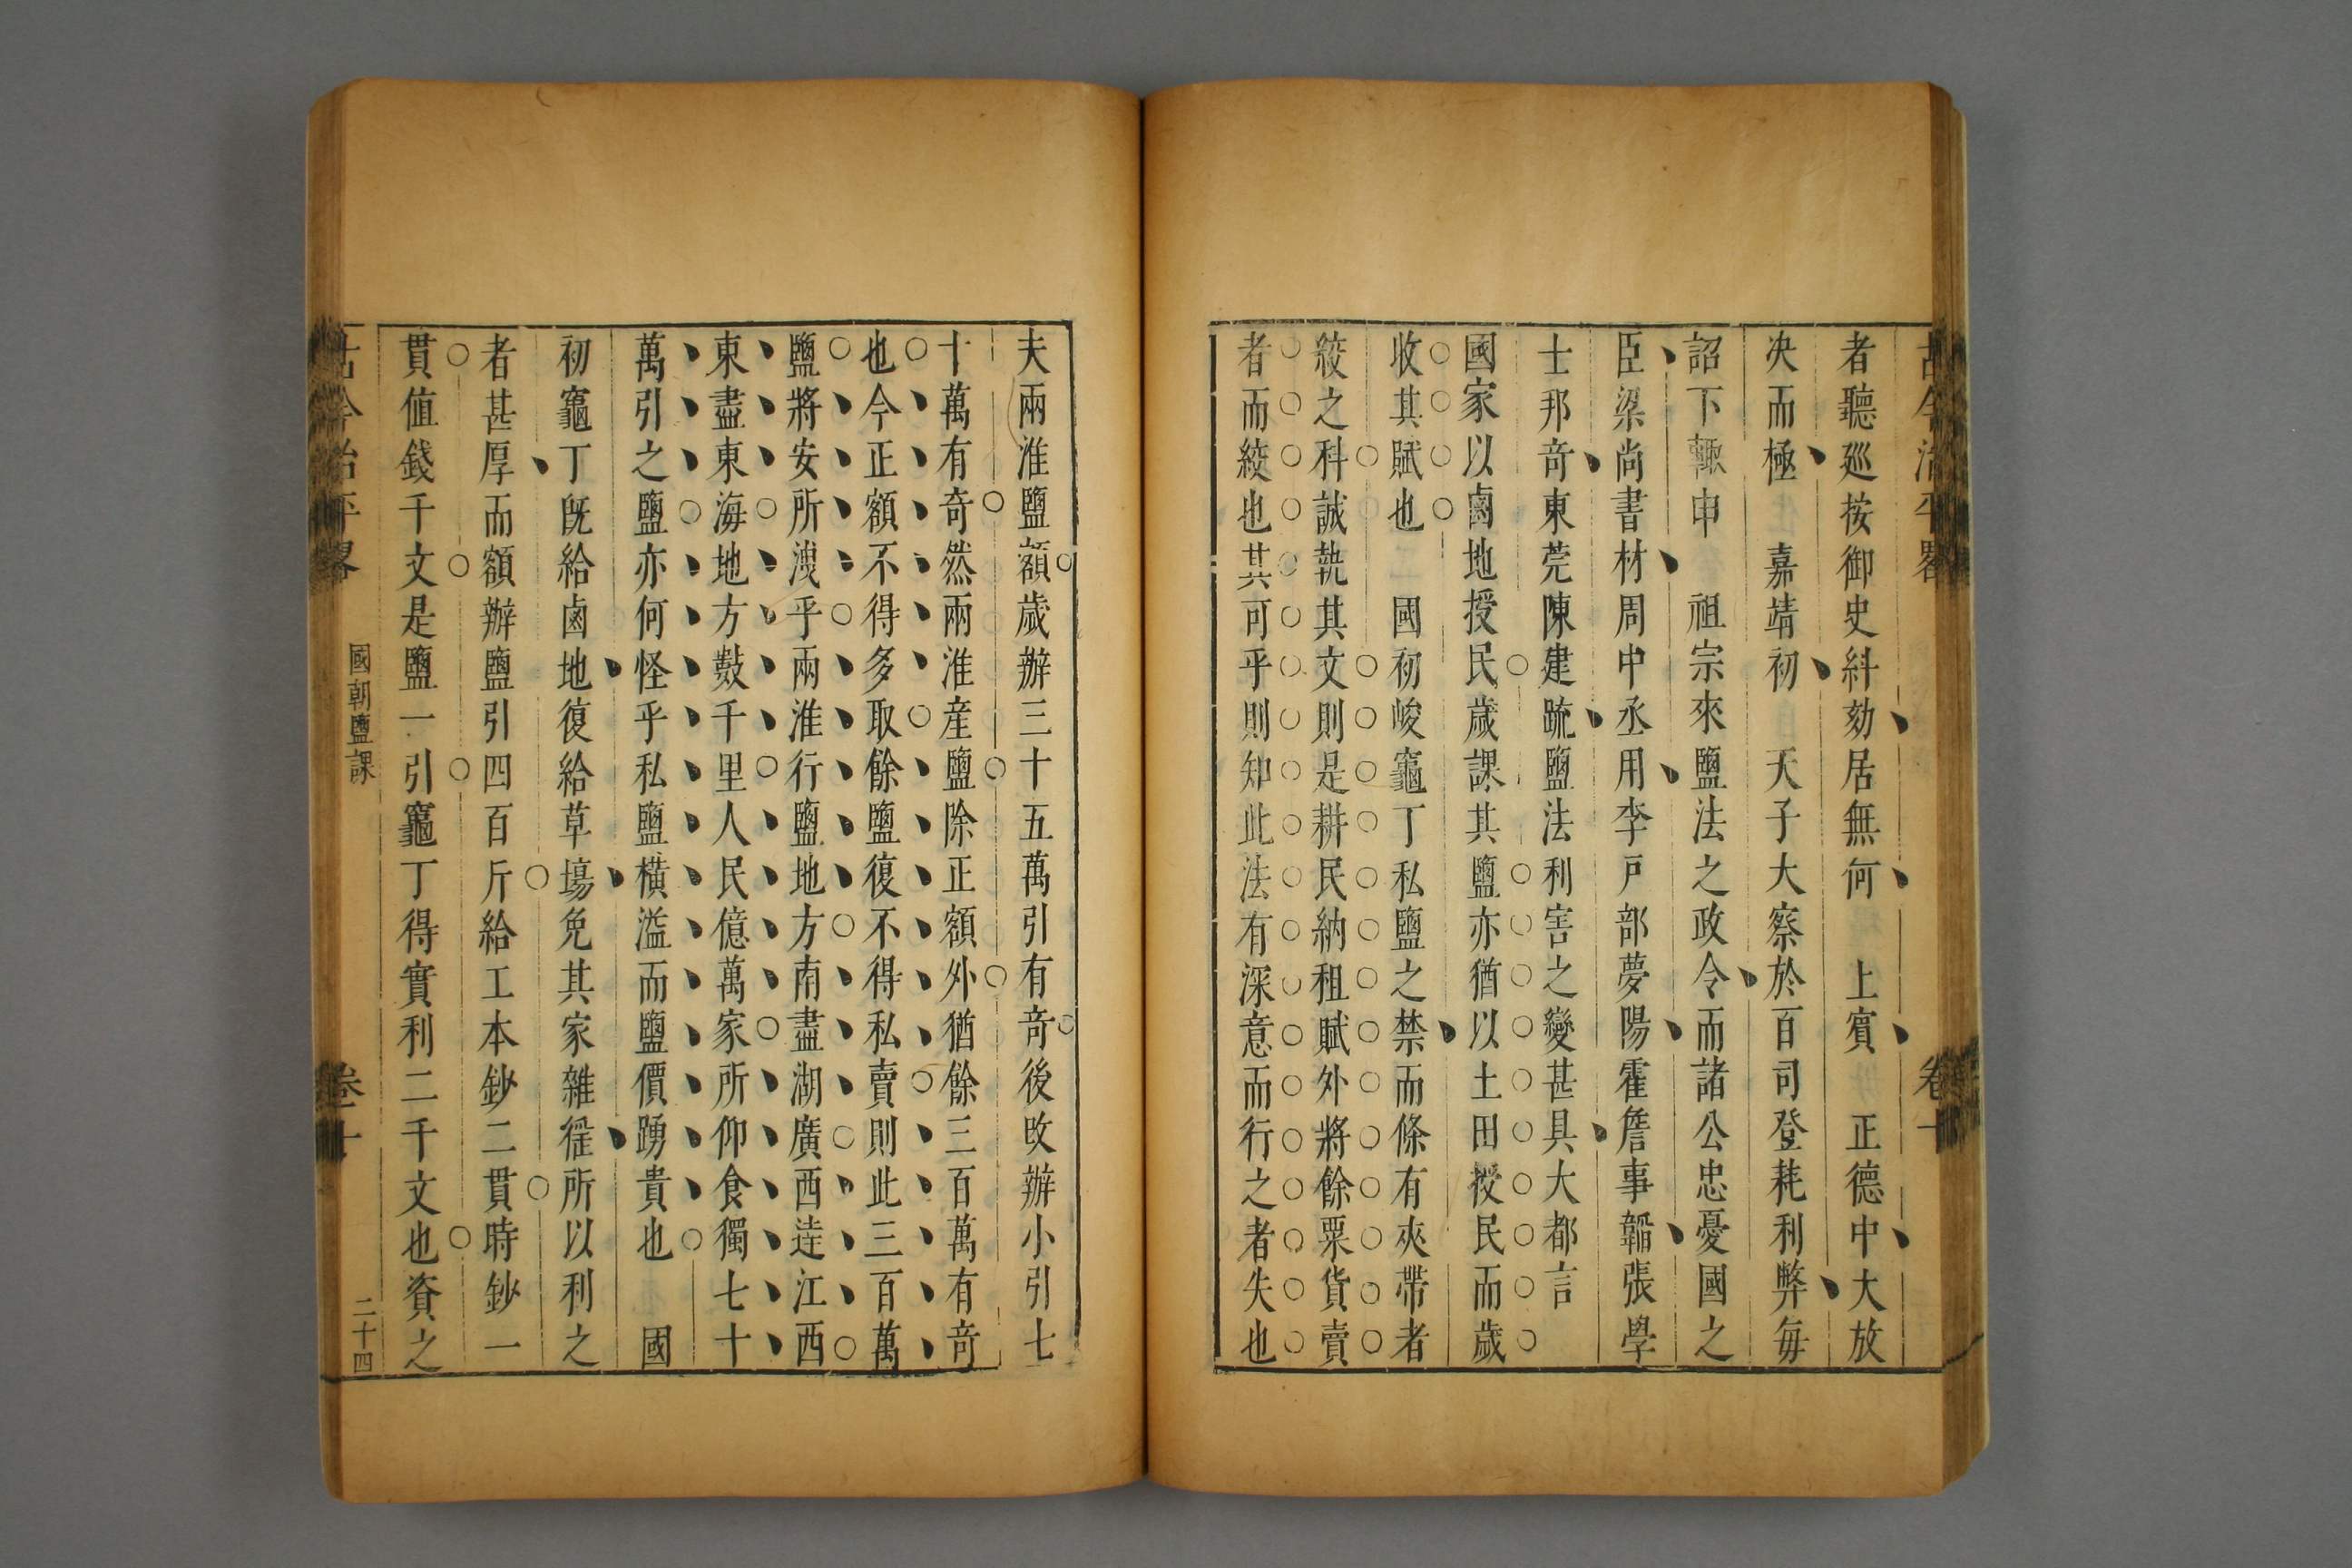 古今治平畧
卷十
者聽廵按御史糾劾居無何　上賓　正德中大放
决而極　嘉靖初　天子大察於百司登耗利弊每
詔下輙申　祖宗來鹽法之政令而諸公忠憂國之
臣梁尚書材周中丞用李戸部夢陽霍詹事韜張學
士邦竒東莞陳建䟽鹽法利害之變甚具大都言
國家以鹵地授民歲課其鹽亦猶以土田授民而歲
收其賦也　國初峻竈丁私鹽之禁而條有夾帶者
絞之科誠執其文則是耕民納租賦外將餘粟貨賣
者而絞也其可乎則知此法有深意而行之者失也
夫兩淮鹽額歲辦三十五萬引有竒後改辦小引七
十萬有竒然兩淮産鹽除正額外猶餘三百萬有竒
也今正額不得多取餘鹽復不得私賣則此三百萬
鹽將安所洩乎兩淮行鹽地方南盡湖廣西逹江西
東盡東海地方數千里人民億萬家所仰食獨七十
萬引之鹽亦何怪乎私鹽橫溢而鹽價踴貴也　國
初竈丁旣給鹵地復給草塲免其家雜徭所以利之
者甚厚而額辦鹽引四百斤給工本鈔二貫時鈔一
貫值錢千文是鹽一引竈丁得實利二千文也資之
古今治平畧
國朝鹽課
卷十
二十四